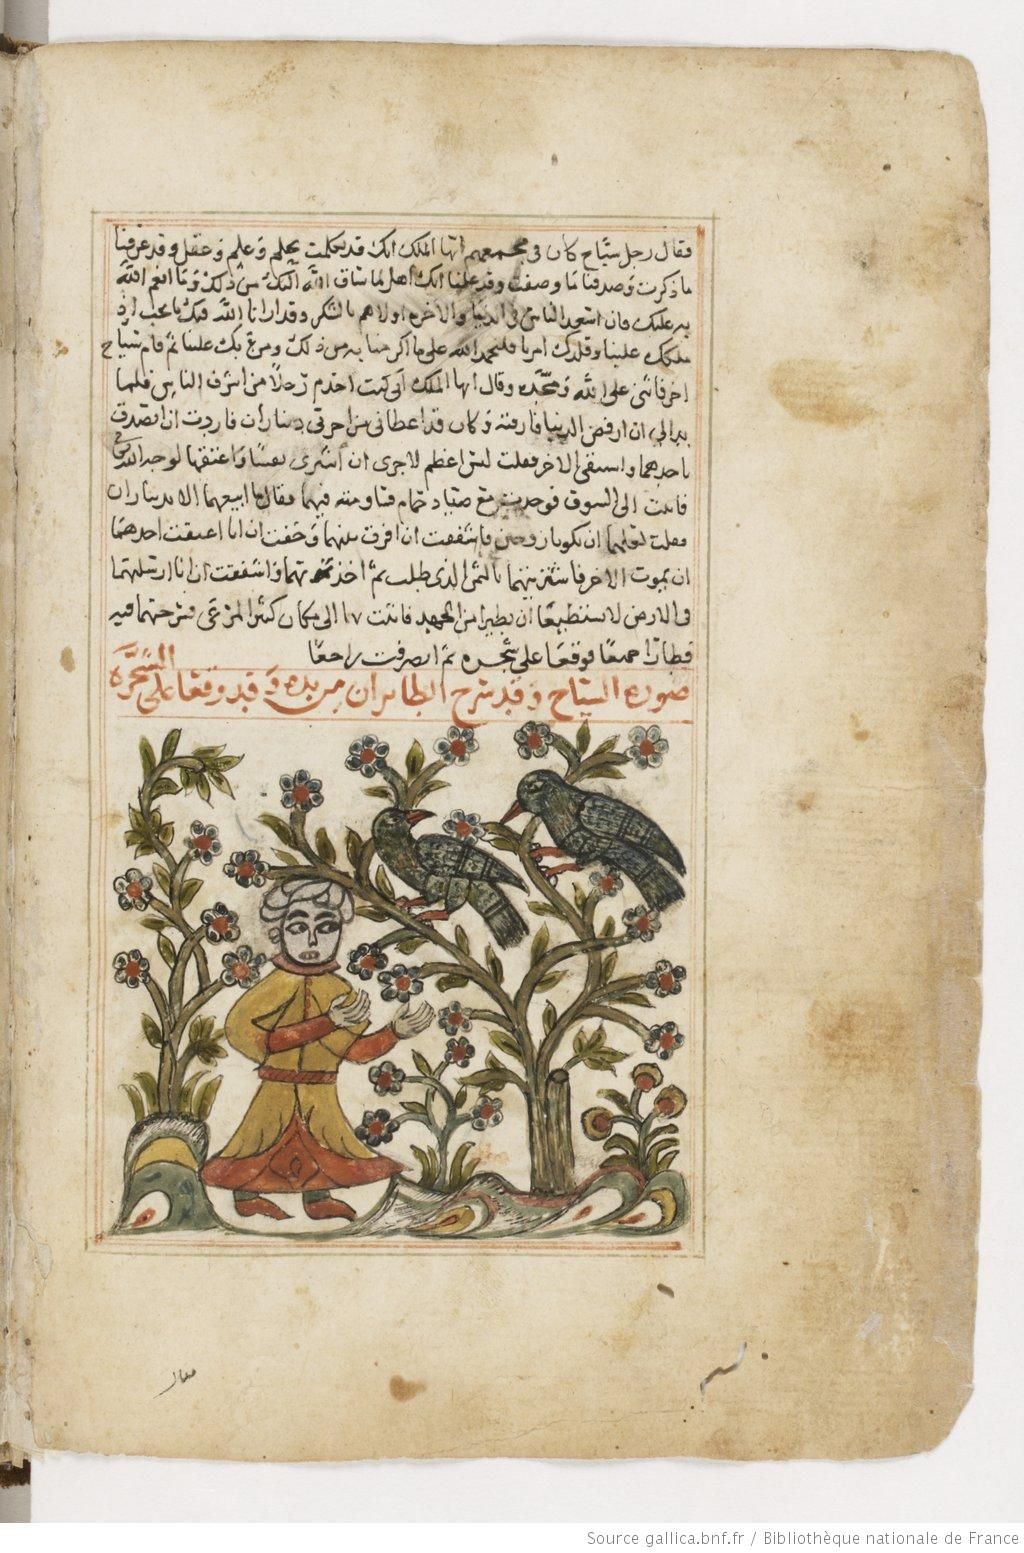 فقال رجل سيّاح كان فى مجمعهم ايها الملك انك قد تكلمت بحلم وعلم وعقل وقد عرفنا
ما ذكرت وصدقنا ما وصفت وقد علمنا انك اهل لما ساق الله اليك من ذلك وما انعم الله
به عليك فان اسعد الناس فى الدنيا والاخره اولاهم بالشكر وقد ارانا الله فيك ما نحب اذ
ملكك علينا وقلدك امرنا فلنحمد الله على ما اكرمنا به من ذلك ومن بك علينا ثم قام سياح
اخر فاثنى على الله ومجّده وقال ايها الملك انى كنت اخدم رجلاً من اشرف الناس فلما
بدا لى ان ارفض الدنيا فارقته وكان قد اعطانى من اجرتى ديناران فاردت ان اتصدق
باحدهما واستبقى الاخر فقلت ليس اعظم لاجرى ان اشترى نفسًا واعتقها لوجه الله
فاتيت الى السوق فوجدت مع صياد حمام فساومته فيهما فقال ما ابيعهما الا بديناران
فقلت لعلهما ان يكونا زوجين فاشفقت ان افرق بينهما وخفت ان انا اعتقت احدهما
ان يموت الاخر فاشتريتهما بالثمن الذى طلب ثم اخذتهما واشفقت ان انا ارسلتهما
فى الارض لا يستطيعا ان يطيرا من الجهد فاتيت بهما الى مكان كثير المرعى فسرحتهما فيه
فطارا جميعًا فوقعا على شجره ثم انصرفت راجعًا
صورة السيّاح وقد سرح الطايران من يده وقد وقعا على الشجره
فقال
Source gallica.bnf.fr / Bibliothèque nationale de France